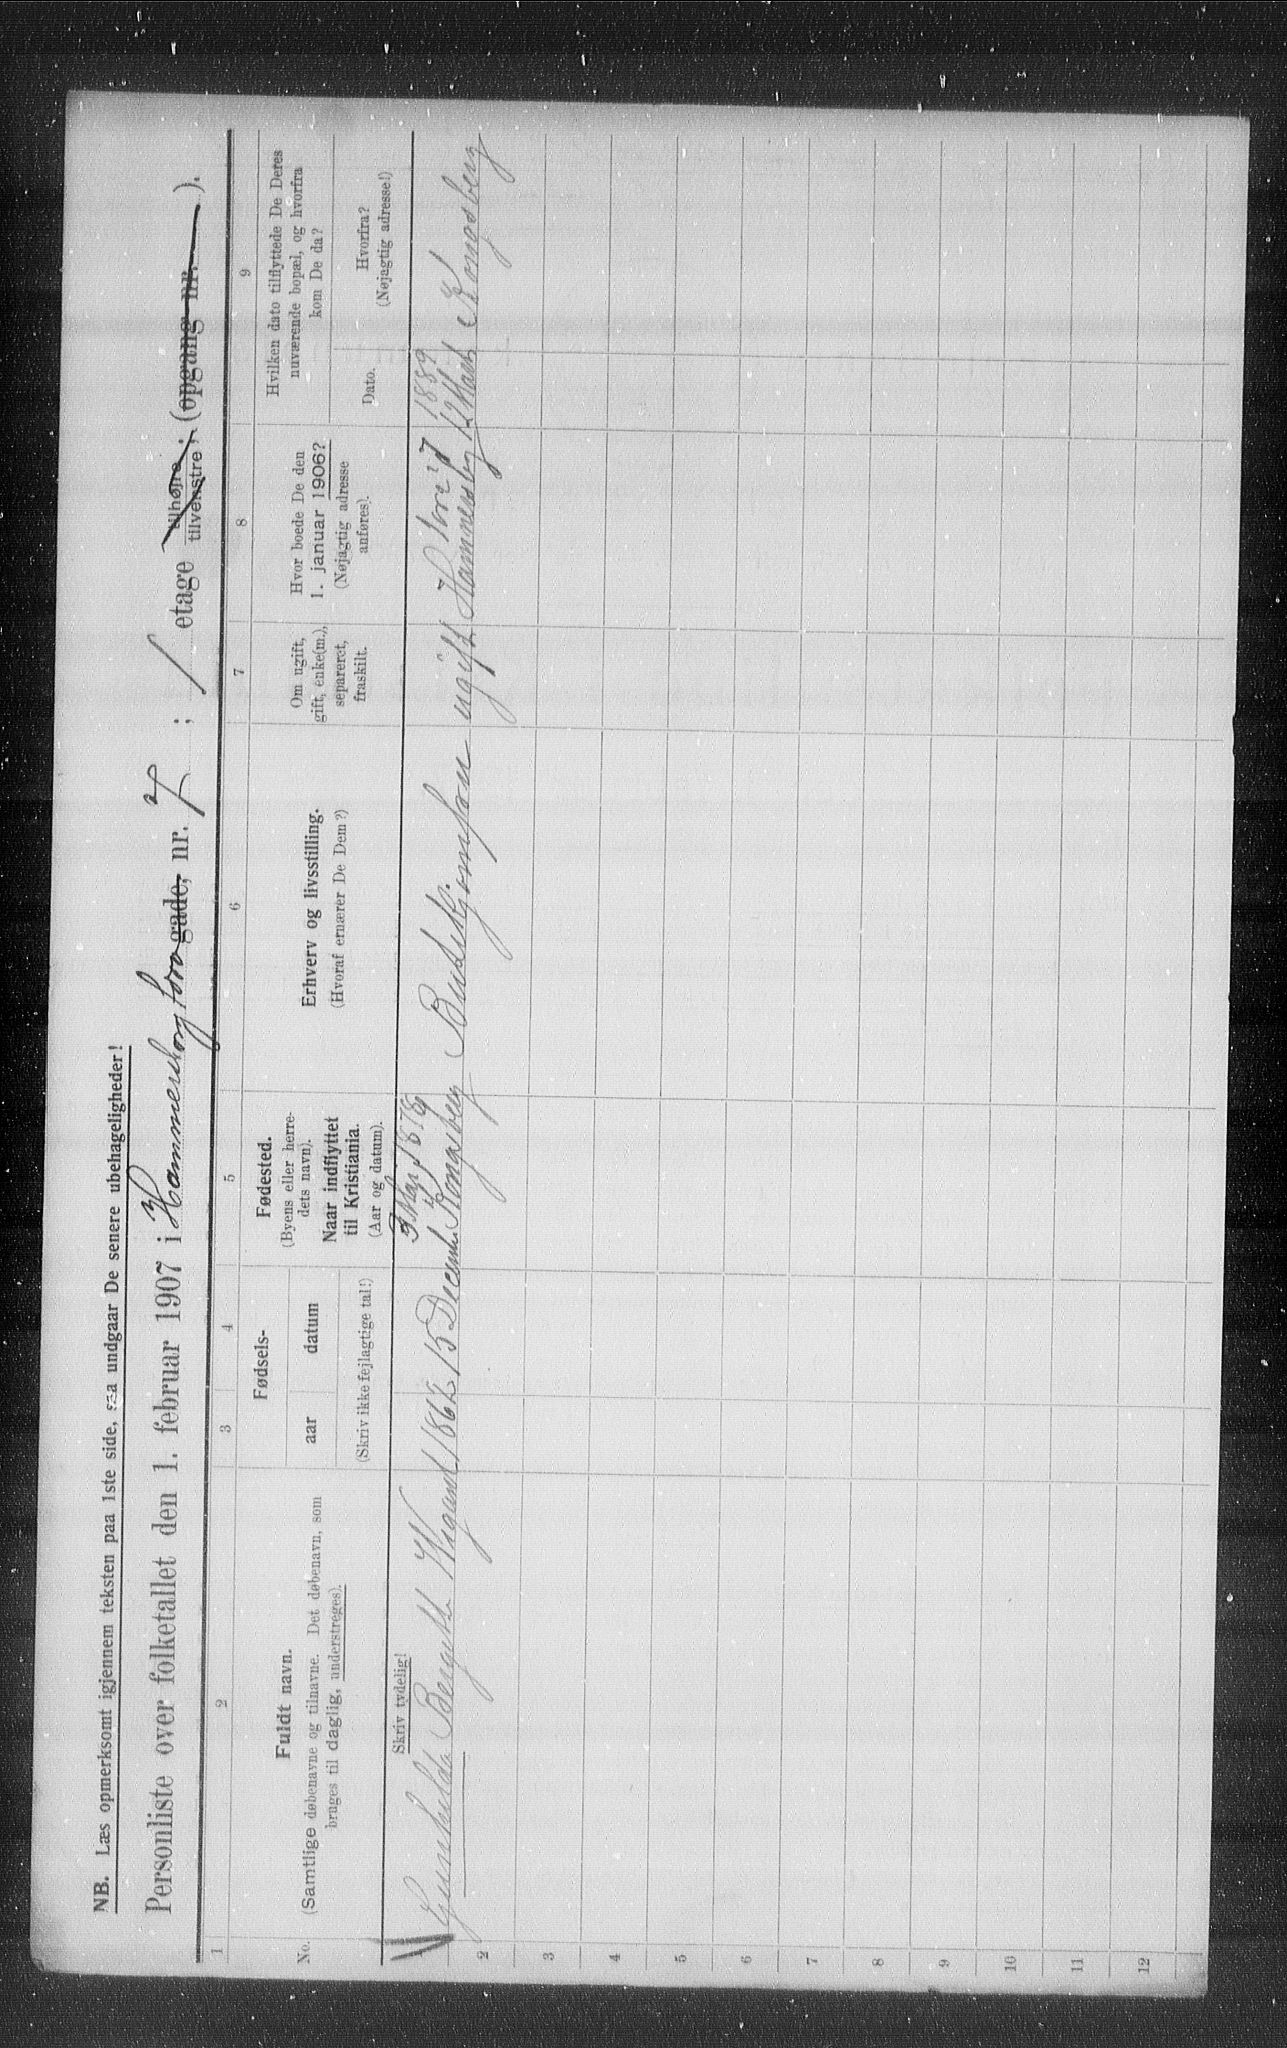 NB. Læs opmerksomt igjennem teksten paa 1ste side, saa undgaar De senere ubehageligheder!
Personliste over folketallet den 1. februar 1907 i Hammersborg torv gade, nr. 7; 1 etage tilhøire, tilvenstre, (opgang nr. ).
1 2 3 4 5 6 7 8 9
No.
Fuldt navn.
(Samtlige døbenavne og tilnavne. Det døbenavn, som
bruges til daglig, understreges).
Skriv tydelig!
Fødsels-
aar datum
(Skriv ikke fejlagtige tal!)
Fødested.
(Byens eller herre-
dets navn).
Naar indflyttet
til Kristiania.
(Aar og datum).
Erhverv og livsstilling.
(Hvoraf ernærer De Dem?)
Om ugift,
gift, enke(m.),
separeret,
fraskilt.
Hvor boede De den
1. januar 1906?
(Nøjagtig adresse
anføres).
Hvilken dato tilflyttede De Deres
nuværende bopæl, og hvorfra
kom De da?
Dato.
Hvorfra?
(Nøjagtig adresse!)
Mai 1878 Torv 7 1889
Gunhilda Bergitte Wigant 1862 15 December Kongsberg ugift Hammersborg Kongsberg
2
3
4
5
6
7
8
9
10
11
12